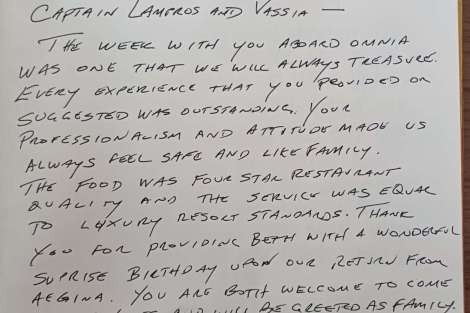 CAPTAIN LAMBROS AND VASSIA —
THE WEEK WITH YOU ABOARD OMNIA
WAS ONE THAT WE WILL ALWAYS TREASURE.
EVERY EXPERIENCE THAT YOU PROVIDED OR
SUGGESTED WAS OUTSTANDING. YOUR
PROFESSIONALISM AND ATTITUDE MADE US
ALWAYS FEEL SAFE AND LIKE FAMILY.
THE FOOD WAS FOUR STAR RESTAURANT
QUALITY AND THE SERVICE WAS EQUAL
TO LUXURY RESORT STANDARDS. THANK
YOU FOR PROVIDING BETH WITH A WONDERFUL
SUPRISE BIRTHDAY UPON OUR RETURN FROM
AEGINA. YOU ARE BOTH WELCOME TO COME
AND WILL BE GREETED AS FAMILY.